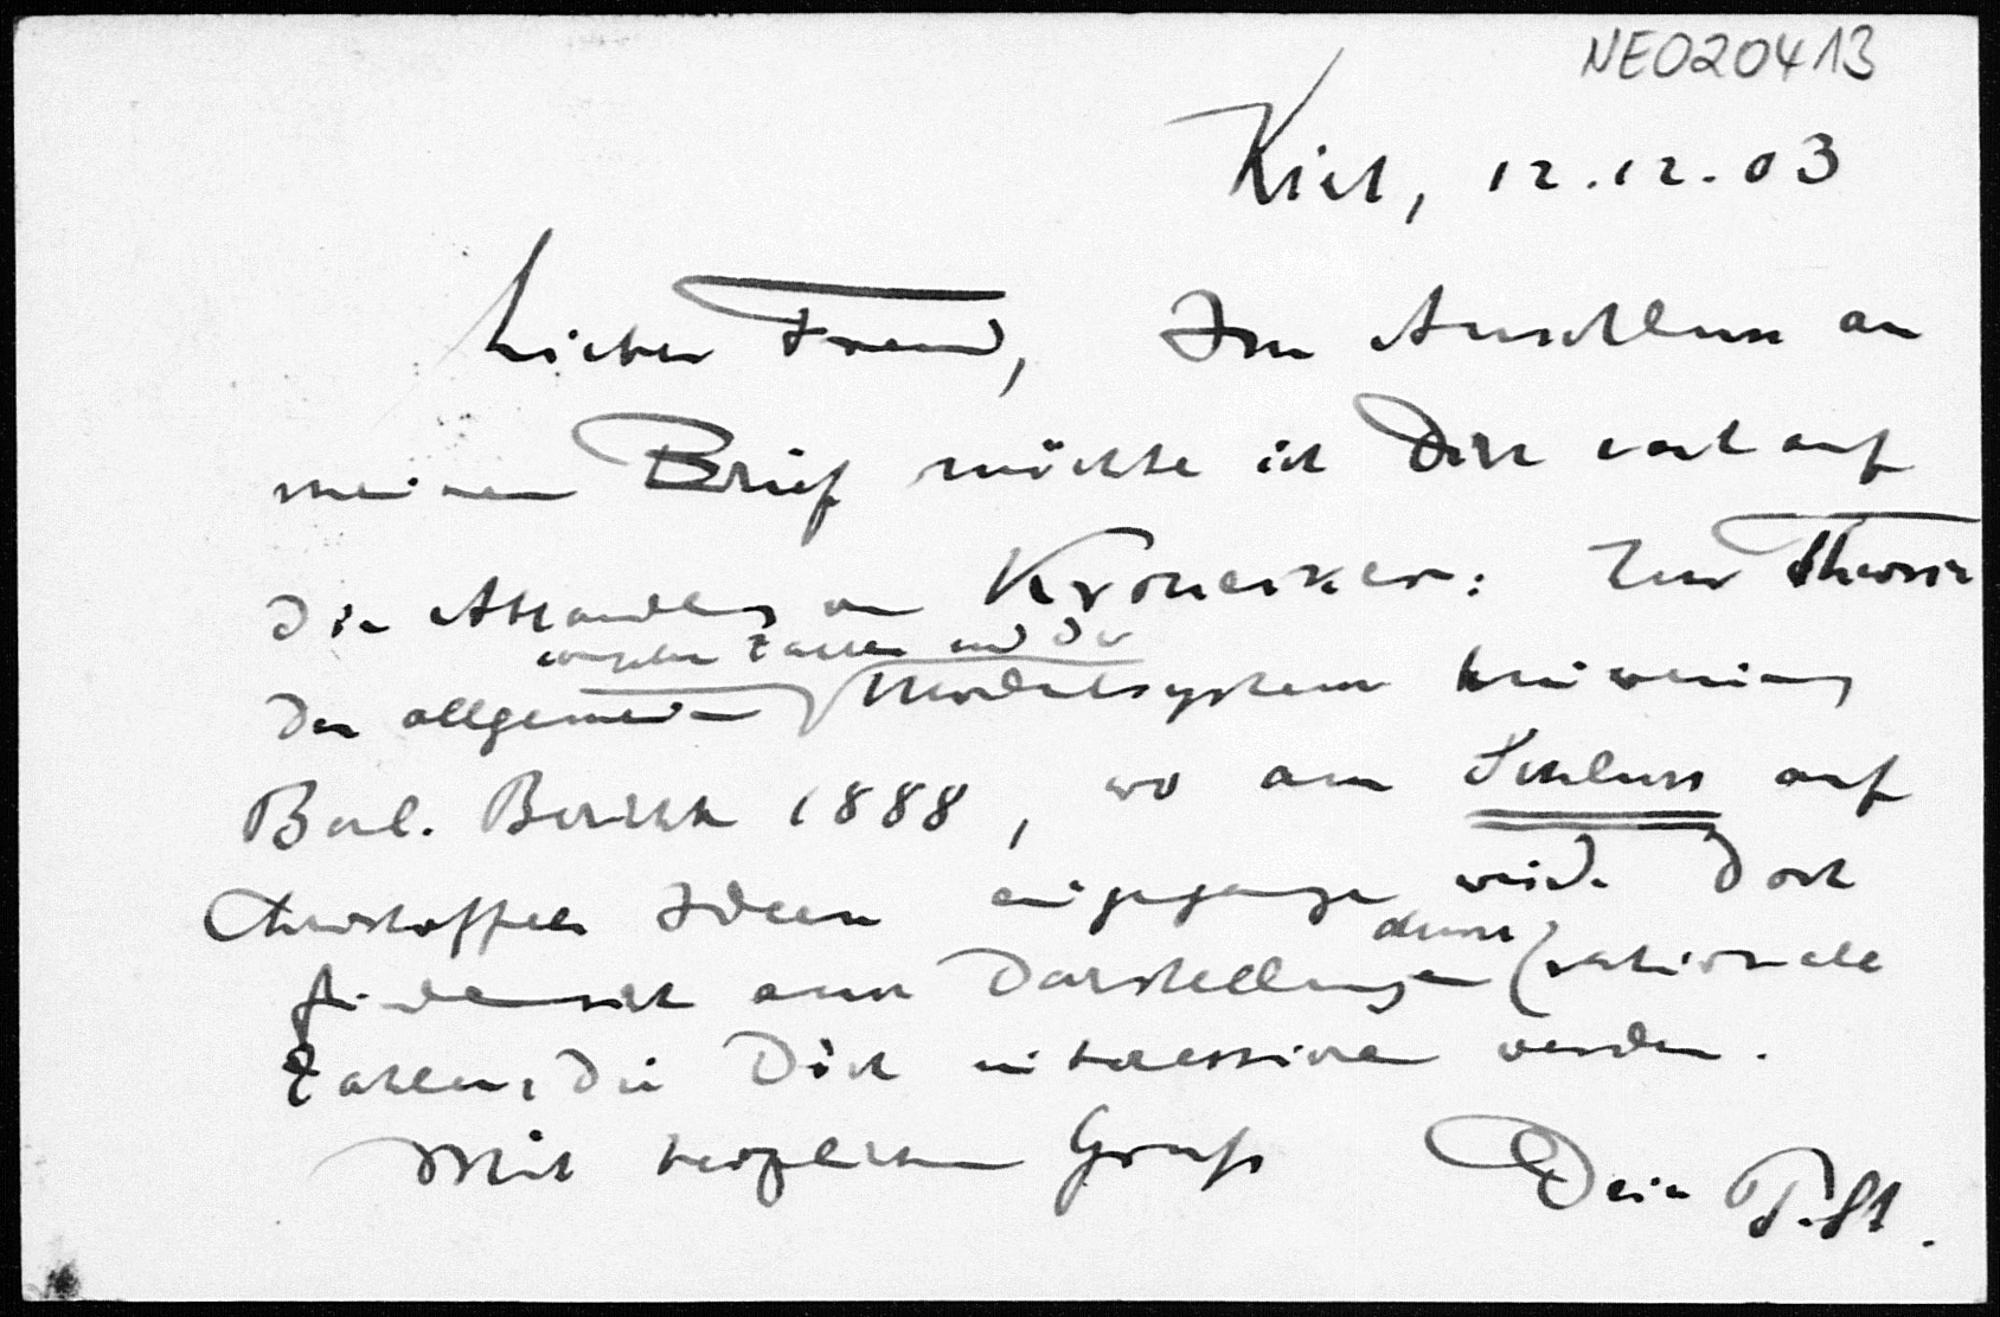 NE020413
Kiel, 12.12.03
Lieber Freund, Im Anschluss an
meinen Brief möchte ich Dich noch auf
die Abhandlung von Kronecker: Zur Theorie
complexen Zahlen und der
der allgemeinen Modulsysteme hinweisen,
Berl. Berichte 1888, wo am Schluss auf
Christoffels Ideen eingegangen wird. Dort
finden sich auch Darstellungen durch rationale
Zahlen, die Dich interessiren werden.
Mit herzlichem Gruß Dein P. St.